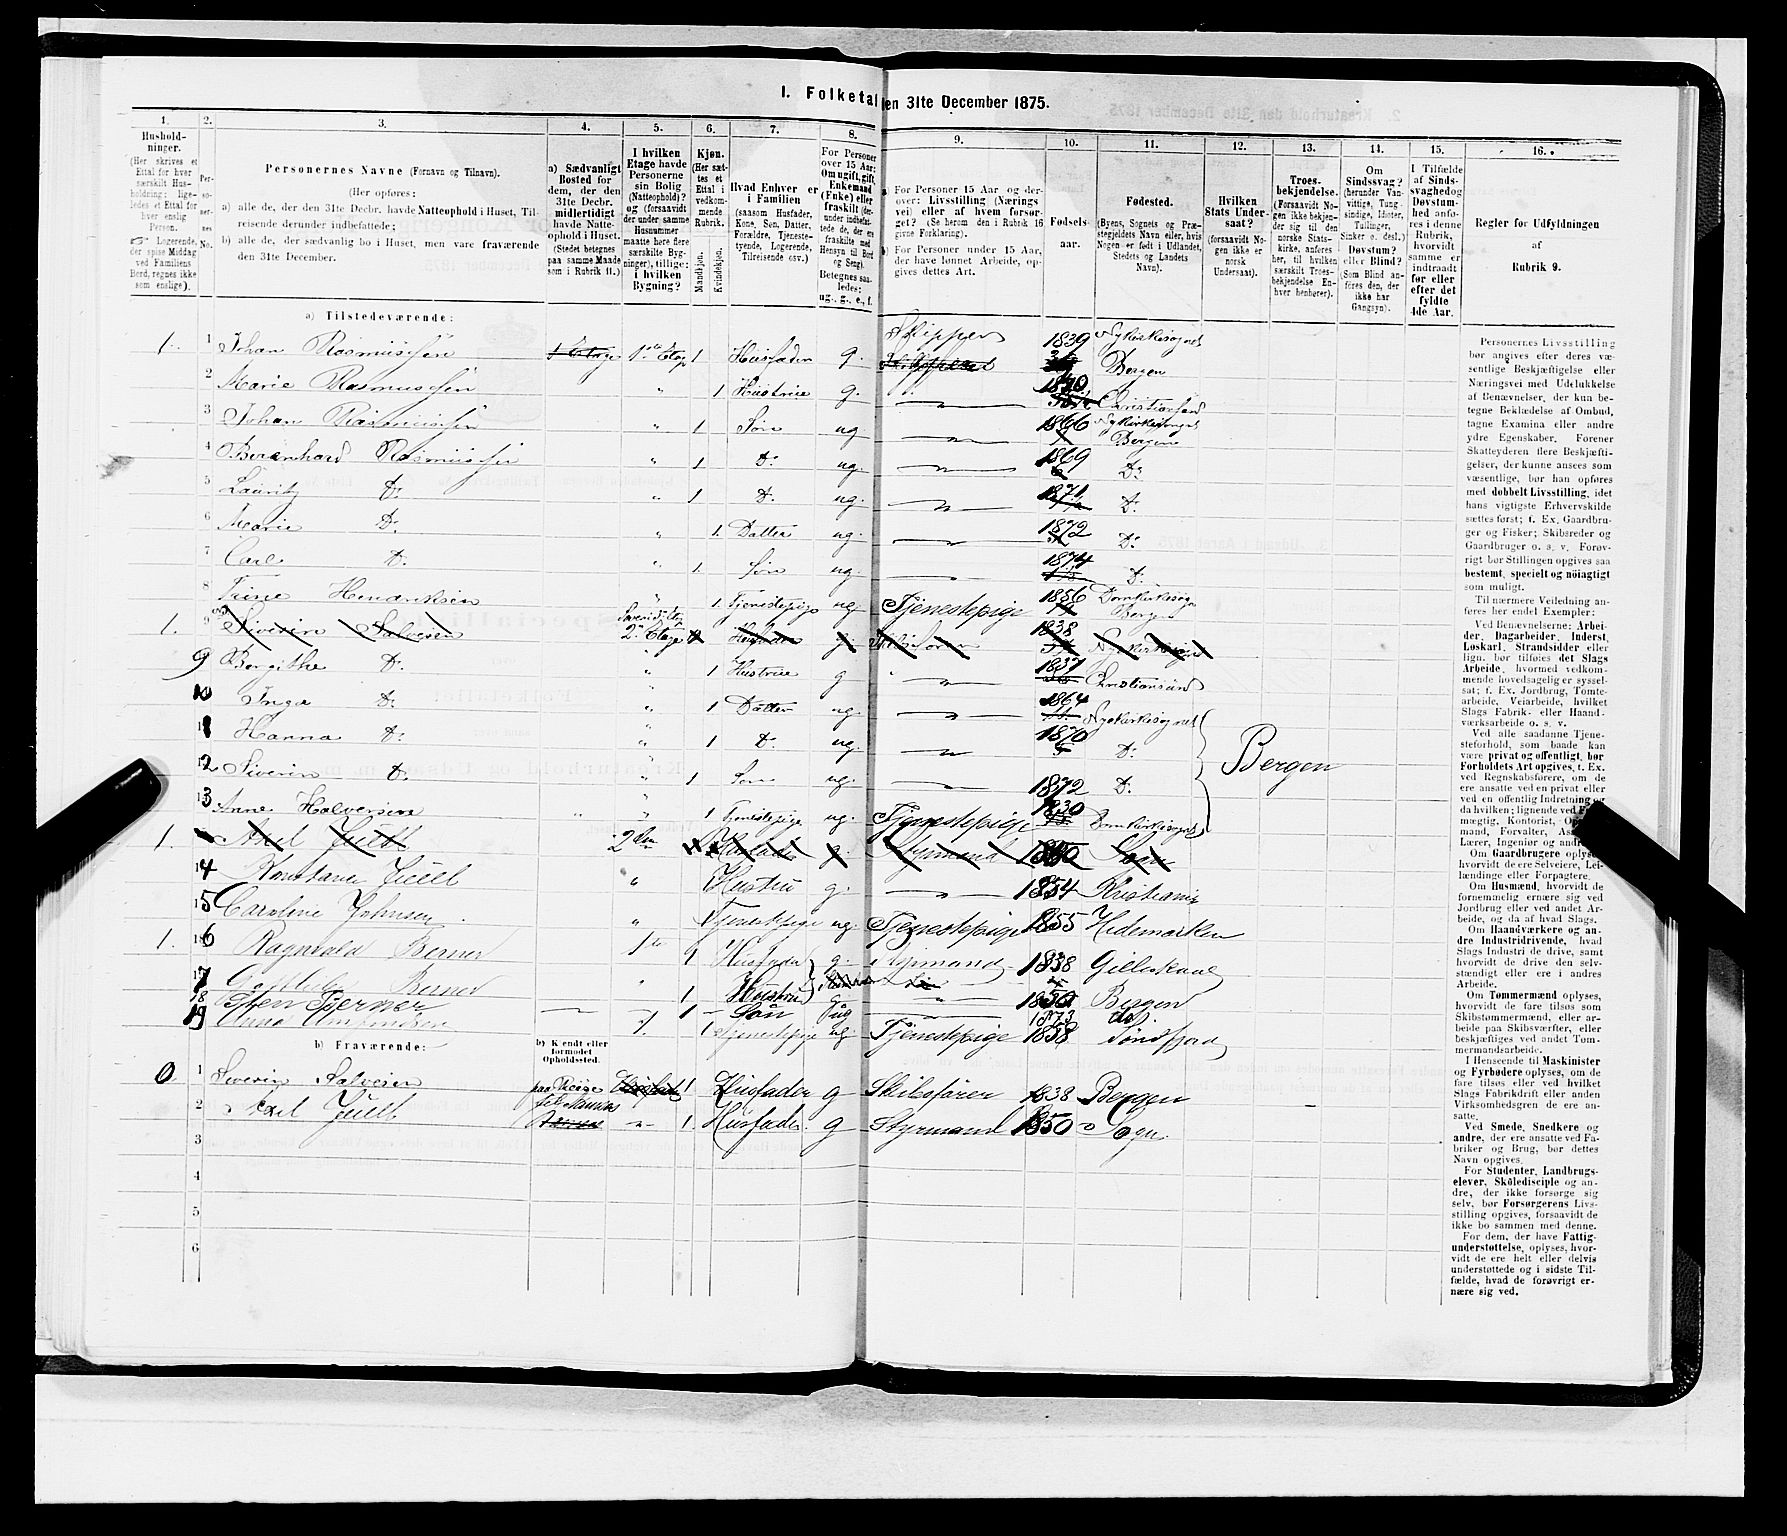 1. Folketal den 31te December 1875.
1. 2. 3. 4. 5. 6. 7. 8. 9. 10. 11. 12. 13. 14. 15. 16.
Husholdninger. (Her skrives et Ettal for hver særskilt Husholdning; ligeledes et Ettal for hver enslig Person. Logerende, der spise Middag ved Familiens Bord, regnes ikke som enslige).
Personernes No.
Personernes Navne (Fornavn og Tilnavn).
(Her opføres:
a) alle de, der den 31te Decbr. havde Natteophold i Huset, Tilreisende derunder indbefattede;
b) alle de, der sædvanlig bo i Huset, men vare fraværende den 31te December.
a) Sædvanligt Bosted for dem, der den 31te Decbr. midlertidigt havde Natteophold i Huset. (Stedet betegnes paa samme Maade som i Rubrik 11.)
I hvilken Etage havde Personerne sin Bolig (Natteophold)? og (forsaavidt der under samme Husnummer maatte høre flere særskilte Bygninger), tillige: i hvilken Bygning?
Kjøn. (Her sættes et Ettal i vedkommende Rubrik.
Mandkjøn. Kvindekjøn.
Hvad Enhver er i Familien (saasom Husfader, Kone, Søn, Datter, Forældre, Tjenestetyende, Logerende, Tilreisende osv.)
For Personer over 15 Aar: Om ugift, gift, Enkemand (Enke) eller fraskilt (derunder indbefattede de, der ere fraskilte med Hensyn til Bord og Seng). Betegnes saaledes: ug., g., e., f.
a) For Personer 15 Aar og derover: Livsstilling (Næringsvei) eller af hvem forsørget? (Se herom den i Rubrik 16 givne Forklaring).
b) For Personer under 15 Aar, der have lønnet Arbeide, opgives dettes Art.
Fødselsaar.
Fødested. (Byens, Sognets og Præstegjeldets Navn eller, hvis Nogen er født i Udlandet, Stedets og Landets Navn).
Hvilken Stats Undersaat? (forsaavidt Nogen ikke er norsk Undersaat).
Troesbekjendelse. (Forsaavidt Nogen ikke bekjender sig til den norske Statskirke, anføres her, til hvilken særskilt Troesbekjendelse Enhver henhører).
Om Sindssvag? (herunder Vanvittige, Tungsindige, Idioter, Tullinger, Sinker o. desl.) Døvstum? eller Blind? (Som Blind anføres den, der ikke har Gangsyn).
I Tilfælde af Sindssvaghed og Døvstumhed anføres i denne Rubrik, hvorvidt samme er indtraadt før eller efter det fyldte 4de Aar.
Regler for Udfyldningen af Rubrik 9.
a) Tilstedeværende:
1. 1 Johan Rasmussen 1 Etage 1ste Etage 1 Husfader g. Skipper 1839 Nykirkesognet Bergen
2 Marie Rasmussen " 1 Hustrue g. 1840 Christiansand
3 Johan Rasmussen " 1 Søn ug 1866 Nykirkesognet Bergen
4 Berenhard Rasmussen " 1 Do ug. 1869 Do
5 Lauritz Do " 1 D. ug. 1871 Do
6 Marie Do " 1. Datter ug. 1872 Do
7 Carl Do " 1. Søn ug. 1874 D.
8 Trine Hendriksen " 1. Tjenestepige ug Tjenestepige 1856 Domkirkesogn Bergen
1. 9 Siverin Salvesen 2. Etage Husfader g. 1838 Nykirkesogn
9 Bergithe D. " 1 Hustrue g " 1837 Christiansund
10 Inga Do " 1 Datter ug. 1864 Nykirkesognet
11 Hanna Do " 1 D. ug. 1870 Do
Bergen
12 Siverin Do " 1 Søn ug. 1872 D.
13 Anne Halvorsen " 1 Tjenestepige ug. Tjenestepige 1830 Domkirkesognet
1. Axel Juell 2den Husfader g. Styrmand 1850 Sogn
14 Konstanse Juell " Hustru g. 1854 Kristiania
15 Caroline Johnsen " Tjenestepige ug. Tjenestepige 1855 Hedemarken
1. 16 Ragnvald Berner 1ste 1 Husfader g. Styrmand 1838 Gilleskaal
17 Berner " 1 Hustrue 1850 Bergen
18 Sten Berner 1 Søn ug 1873 do.
19 Anna Amundsen 1 Tjenestepige ug. Tjenestepige 1858 Søndfjord
b) Fraværende: b) Kjendt eller formodet Opholdssted.
0 1 Severin Salvesen paa Reise 1 Husfader g Skibsfører 1838 Bergen
2 Axel Juell 1 Husfader. g Styrmand 1850 Sogn
3
4
5
6
Personernes Livsstilling bør angives efter deres væsentlige Beskjæftigelse eller Næringsvei med Udelukkelse af Benævnelser, der kun betegne Beklædelse af Ombud, tagne Examina eller andre ydre Egenskaber. Forener Skatteyderen flere Beskjæftigelser, der kunne ansees som væsentlige, bør han opføres med dobbelt Livsstilling, idet hans vigtigste Erhvervskilde sættes først; f. Ex. Gaardbruger og Fisker; Skibsreder og Gaardbruger o. s. v. Forøvrigt bør Stillingen opgives saa bestemt, specielt og nöiagtigt som muligt.
Til nærmere Veiledning anføres her endel Exempler:
Ved Benævnelserne: Arbeider, Dagarbeider, Inderst, Løskarl, Strandsidder eller lign. bør tilføies det Slags Arbeide, hvormed vedkommende hovedsagelig er sysselsat; f. Ex. Jordbrug, Tomtearbeide, Veiarbeide, hvilket Slags Fabrik- eller Haandværksarbeide o. s. v.
Ved alle saadanne Tjenesteforhold, som baade kan være privat og offentligt, bør Forholdets Art opgives, t. Ex. ved Regnskabsførere, om de ere ansatte ved en privat eller ved en offentlig Indretning og da hvilken; lignende ved mægtig, Kontorist, mand, Forvalter, Lærer, Ingeniør og
Om Gaardbrugere oplyses, hvorvidt de ere Selveiere, Leilændinge eller Forpagtere.
Om Husmænd, hvorvidt de fornemmelig ernære sig ved Jordbrug eller ved andet Arbeide, og da af hvad Slags.
Om Haandværkere og andre Industridrivende, hvad Slags Industri de drive, samt hvorvidt de drive den selvstændigt eller ere i andres Arbeide.
Om Tømmermænd oplyses, hvorvidt de fare tilsøs som Skibstømmermænd, eller arbeide paa Skibsværfter, eller beskjæftiges ved andet Tømmermandsarbeide.
I Henseende til Maskinister og Fyrbødere oplyses, om de fare tilsøs eller ved hvilket Slags Fabrikdrift eller anden Virksomhedsgren de ere ansatte.
Ved Smede, Snedkere og andre, der ere ansatte ved Fabriker og Brug, bør dettes Navn opgives.
For Studenter, Landbrugselever, Skoledisciple og andre, der ikke forsørge sig selv, bør Forsørgerens Livsstilling opgives, forsaavidt de ikke bo sammen med denne.
For dem, der have Fattigunderstøttelse, oplyses, hvorvidt de ere helt eller delvis understøttede og i sidste Tilfælde, hvad de forøvrigt ernære sig ved.